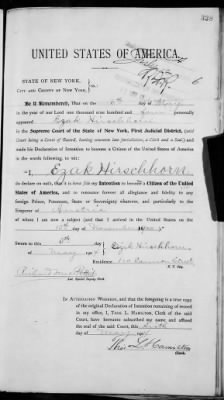 328
UNITED STATES OF AMERICA.
STATE OF NEW YORK,
CITY AND COUNTY OF NEW YORK, ss.:
6
Be it Remembered, That on the 6th day of May
in the year of our Lord one thousand nine hundred and personally appeared
Ezak Hirschhorn
in the Supreme Court of the State of New York, First Judicial District, (said
Court being a Court of Record, having common law jurisdiction, a Clerk and a Seal) and
made his Declaration of Intention to become a Citizen of the United States of America
in the words following, to wit:
I, Ezak Hirschhorn
do declare on oath, that it is bona fide my Intention to become a Citizen of the United
States of America, and to renounce forever all allegiance and fidelity to any
foreign Prince, Potentate, State or Sovereignty whatever, and particularly to the
Emperor of Austria
of whom I am now a subject (and that I arrived in the United States on the
day of November
Sworn to this 6th day of
May Ezak Hirschhorn
Residence Cannon Street
N. Y. City.
Special Deputy Clerk.
IN ATTESTATION WHEREOF, and that the foregoing is a true copy
of the original Declaration of Intention remaining of record
in my office, I, THOS. L. HAMILTON, Clerk of the said
Court, have hereunto subscribed my name and affixed
the seal of the said Court, this sixth
day of May
Thos L Hamilton
Clerk.